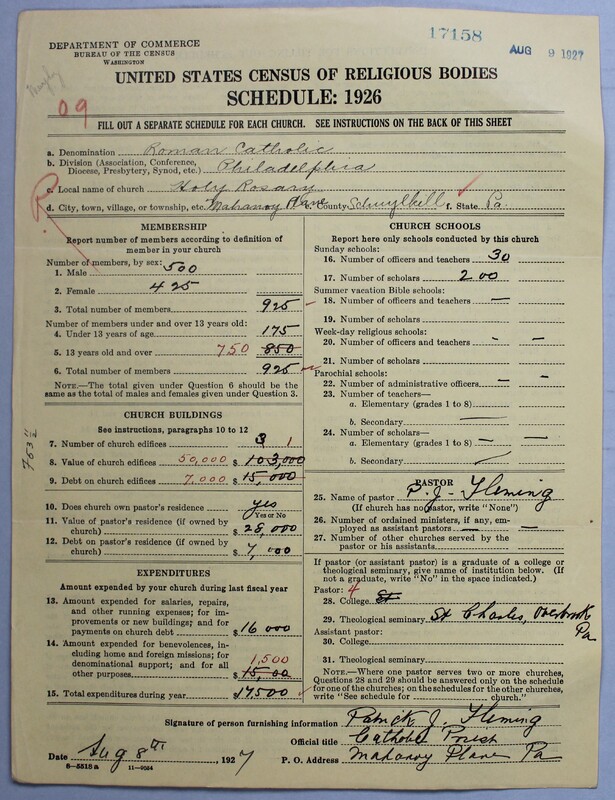 17158
AUG 9 1927
DEPARTMENT OF COMMERCE
BUREAU OF THE CENSUS
WASHINGTON
09
UNITED STATES CENSUS OF RELIGIOUS BODIES
SCHEDULE: 1926
FILL OUT A SEPARATE SCHEDULE FOR EACH CHURCH. SEE INSTRUCTIONS ON THE BACK OF THIS SHEET
a. Denomination Roman Catholic
b. Division (Association, Conference,
Diocese, Presbytery, Synod, etc.) Philadelphia
c. Local name of church Holy Rosary
d. City, town, village, or township, etc. Mahanoy Plane e. County Schuylkill f. State Pa.
MEMBERSHIP
Report number of members according to definition of
member in your church
Number of members, by sex:
1. Male 500
2. Female 425
3. Total number of members 925
Number of members under and over 13 years old:
4. Under 13 years of age 175
5. 13 years old and over 750 850
6. Total number of members 925
NOTE.—The total given under Question 6 should be
the same as the total of males and females given under Question 3.
CHURCH BUILDINGS
See instructions, paragraphs 10 to 12
7. Number of church edifices 3 1
8. Value of church edifices 50,000 $ 103,000
9. Debt on church edifices 7,000 $ 15,000
10. Does church own pastor's residence yes
Yes or No
11. Value of pastor's residence (if owned by
church) $ 28,000
12. Debt on pastor's residence (if owned by
church) $ 7,000
EXPENDITURES
Amount expended by your church during last fiscal year
13. Amount expended for salaries, repairs,
and other running expenses; for im-
provements or new buildings; and for
payments on church debt $ 16 000
14. Amount expended for benevolences, in-
cluding home and foreign missions; for
denominational support; and for all
other purposes 1,500 $ 15,00
15. Total expenditures during year $ 17500
CHURCH SCHOOLS
Report here only schools conducted by this church
Sunday schools:
16. Number of officers and teachers 30
17. Number of scholars 200
Summer vacation Bible schools:
18. Number of officers and teachers —
19. Number of scholars
Week-day religious schools:
20. Number of officers and teachers - -
21. Number of scholars
Parochial schools:
22. Number of administrative officers — —
23. Number of teachers—
a. Elementary (grades 1 to 8)
b. Secondary —
24. Number of scholars—
a. Elementary (grades 1 to 8) — —
b. Secondary
PASTOR
25. Name of pastor P. J. Fleming
(If church has no pastor, write "None")
26. Number of ordained ministers, if any, em-
ployed as assistant pastors — —
27. Number of other churches served by the
pastor or his assistants
If pastor (or assistant pastor) is a graduate of a college or
theological seminary, give name of institution below. (If
not a graduate, write "No" in the space indicated.)
Pastor: 4
28. College St
29. Theological seminary St Charles, Overbrook
Pa
Assistant pastor:
30. College
31. Theological seminary
NOTE.—Where one pastor serves two or more churches,
Questions 28 and 29 should be answered only on the schedule
for one of the churches; on the schedules for the other churches,
write "See schedule for church."
Signature of person furnishing information Patrick J. Fleming
Official title Catholic Priest
Date Aug 8th 1927 P. O. Address Mahanoy Plane Pa
8—5518a 11—9034